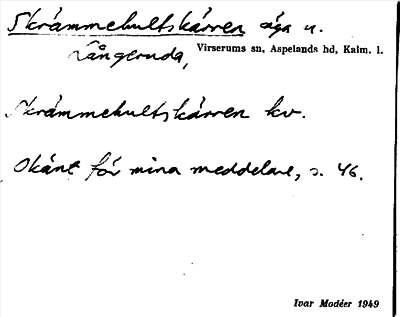 Skrämmehultskärren äga u.
Långeruda, Virserums sn, Aspelands hd, Kalm. l.
Skrämmehultskärren kv.
Okänt för mina meddelare, s. 46.
Ivar Modéer 1949